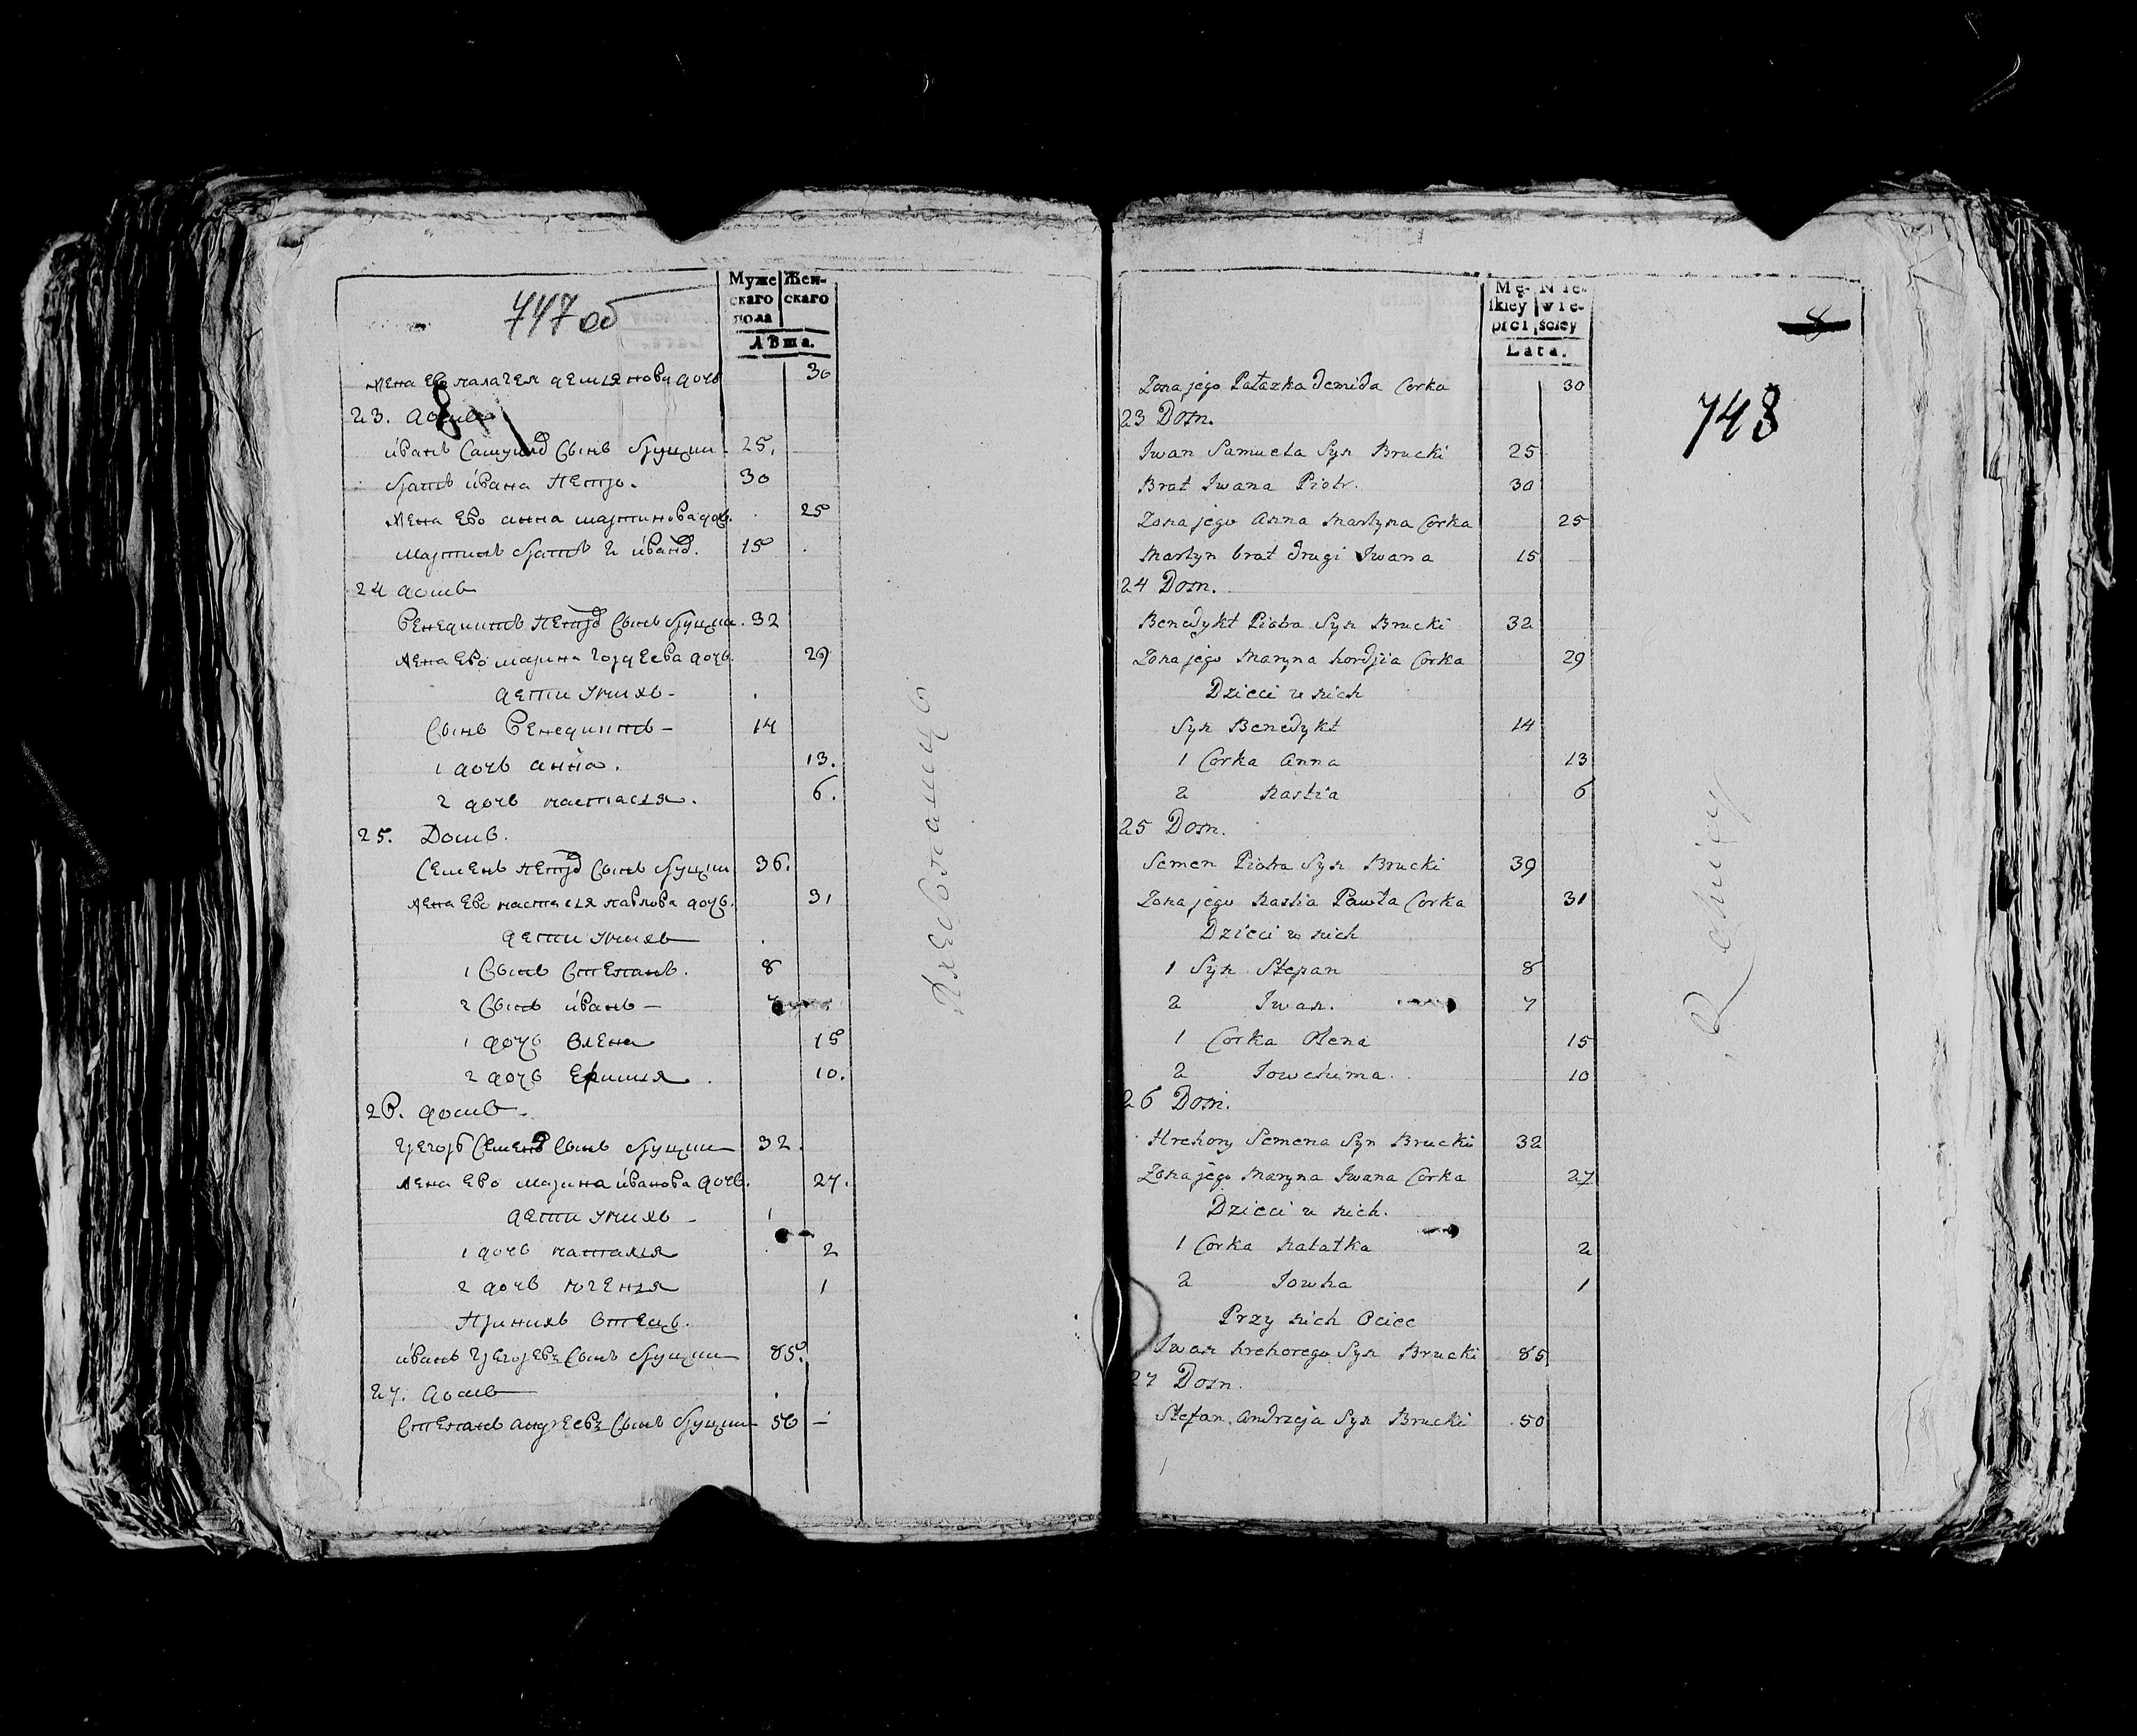 747 об
Муже Жен-
скаго скаго
пола
Лѣта.
жена ево палагея демянова дочь 30
23. домъ
иванъ самуило сынъ бруцки 25.
братъ ивана петро. 30
жена ево анна мартинова доч. 25
мартинъ братъ 2 ивано. 15
24 домъ
венедиктъ петро сынъ бруцки. 32
жена ево марина гордеева дочь. 29
дети унихъ
сынъ венедиктъ 14
1 дочь анна. 13.
2 дочь настасея. 6.
25. Домъ.
семенъ петро сынъ бруцки 36.
жена ево настасея павлова дочь. 31
дети унихъ
1 сынъ степанъ. 8
2 сынъ иванъ 7
1 дочь олена 15
2 дочь 10.
26. домъ
грегоръ семено сынъ бруцки 32.
жена ево марина иванова дочь. 27.
дети унихъ
1 дочь наталея 2
2 дочь югеня 1
принихъ отецъ.
иванъ грегорев сынъ бруцки 85.
27. домъ
степанъ андреев сынъ бруцки 50
хлебопашцъ
Mę- Nie-
ſkiey wie-
płci ściey
Lata.
8
748
Zona jego Pałazka Demida Corka 30
23 Dom.
Iwan Samueła Syn Brucki 25
Brat Iwana Piotr. 30
Zona jego Anna Martyna Corka 25
Martyn brat drugi Iwana 15
24 Dom.
Benedykt Piotra Syn Brucki 32
Zona jego Maryna hordjia Corka 29
Dzieci u nich
Syn Benedykt 14
1 Corka Anna 13
2 Nastia 6
25 Dom.
Semen Piotra Syn Brucki 39
Zona jego Nastia Pawła Corka 31
Dzieci u nich
1 Syn Stepan 8
2 Iwan. 7
1 Corka Olena 15
2 Jowchima. 10
26 Dom.
Hrehory Semena Syn Brucki 32
Zona jego Maryna Iwana Corka 27
Dzieci u nich.
1 Corka Natałka 2
2 Jowha 1
Przy nich Ociec
Iwan hrehorego Syn Brucki 85
27 Dom.
Stefan Andrzeja Syn Brucki 50
Rolnicy